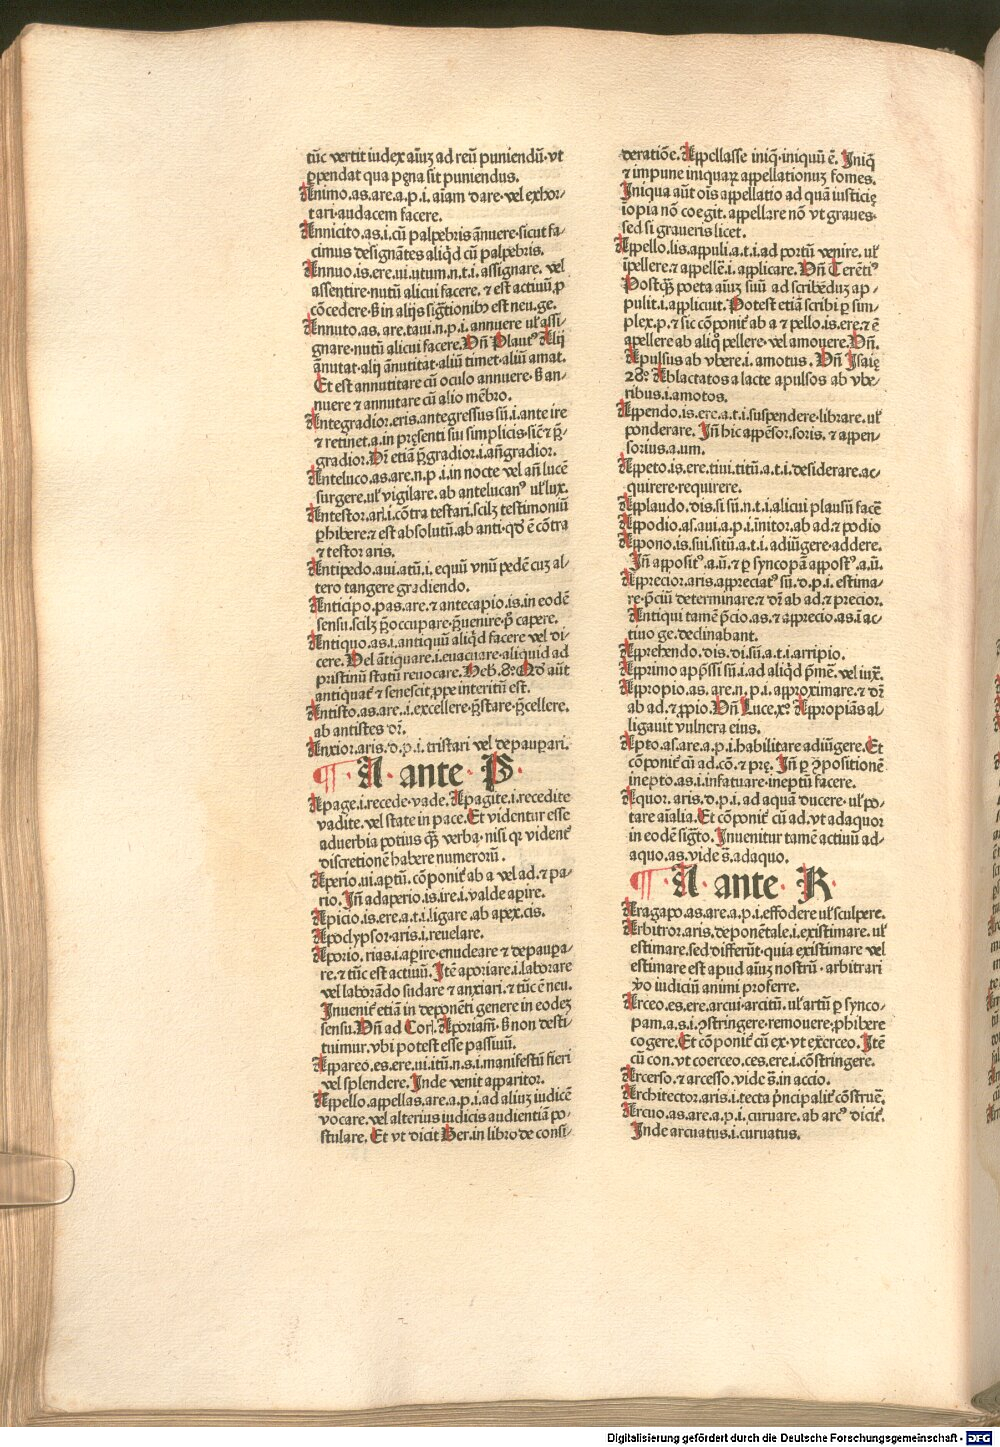 tūc vertit iudex aīuʒ ad reū puniendū·vt
ꝑpendat qua pęna sit puniendus.
Animo.as.are.a.p.i.aīam dare·vel exhor-
tari·audacem facere.
Annicito.as.i.cū palpebris ānuere·sicut fa-
cimus designātes aliq̄d cū palpebris.
Annuo.is.ere.ui.utum.n.t.i.assignare. vel
assentire·nutū alicui facere. ⁊ est actiuū.ꝓ
cōcedere. in alijs sig̅tionibꝰ est neu.ge.
Annuto.as.are.taui.n.p.i.annuere ul̓ assi-
gnare·nutū alicui facere.Vn̄ Plautꝰ Alij
ānutat·alij ānutitat·aliū timet·aliū amat.
Et est annutitare cū oculo annuere· an-
nuere ⁊ annutare cū alio mēbro.
Antegradior.eris.antegressus sū.i.ante ire
⁊ retinet.a.in pręsenti sui simplicis·sic̄ ⁊ p̄-
gradior.Dr̄ etiā p̄gradior.i.an̄gradior.
Anteluco.as.are.n.p.i.in nocte vel an̄ lucē
surgere.ul̓ vigilare. ab antelucanꝰ ul̓ lux.
Antestor.ari.i.cōtra testari.scilʒ testimoniū
ꝑhibere.⁊ est absolutū.ab anti·qd̓ ē cōtra
⁊ testor aris.
Antipedo.aui.atū.i.equū vnū pedē cuʒ al-
tero tangere gradiendo.
Anticipo.pas.are.⁊ antecapio.is.in eodē
sensu.scilʒ p̄occupare·p̄uenire·p̄ capere.
Antiquo.as.i.antiquū aliq̄d facere vel di-
cere.Vel ātiquare.i.euacuare·aliquid ad
pristinū statū reuocare.Heb.8.º Qd̓ aūt
antiquat̄ ⁊ senescit.ꝓpe interitū est.
Antisto.as.are..i.excellere·p̄stare·p̄cellere.
ab antistes dr̄.
Anxior.aris.d.p.i.tristari vel depaupari.
¶·A·ante·P·
Apage.i.recede·vade.Apagite.i.recedite
vadite.vel state in pace.Et videntur esse
aduerbia potius q̄ verba·nisi qꝛ vident̄
discretionē habere numerorū.
Aperio.ui.aꝑtū.cōponit̄ ab a vel ad.⁊ pa-
rio.In̄ adaperio.is.ire.i.valde aꝑire.
Apicio.is.ere.a.t.i.ligare.ab apex.cis.
Apoclypsor·aris.i.reuelare.
Aporio.rias.i.aꝑire·enucleare ⁊ depauꝑa-
re.⁊ tūc est actiuū.Itē aporiare.i.laborare
vel laborādo sudare ⁊ anxiari.⁊ tūc ē neu.
Inuenit̄ etiā in deponēti genere in eodeʒ
sensu.Vn̄ ad Cori.Aporiam̄· non desti
tuimur.vbi potest esse passiuū.
Appareo.es.ere.ui.itū.n.s.i.manifestū fieri
vel splendere.Inde venit apparitor.
Appello.appellas.are.a.p.i.ad aliuʒ iudicē
vocare.vel alterius iudicis audientiā po-
stulare.Et vt dicit Ber.in libro de consi-
deratiōe.Appellasse iniq̄·iniquū ē.Iniq̄
⁊ impune iniquaꝝ appellationuʒ fomes.
Iniqua aūt oīs appellatio ad quā iusticię
īopia nō coegit.appellare nō vt graues·
sed si graueris licet.
Appello.lis.appuli.a.t.i.ad portū venire.ul̓
īpellere.⁊ appellē.i.applicare.Vn̄ Terētiꝰ
Postq̄ poeta aīuʒ suū ad scribēduʒ ap-
pulit.i.applicuit.Potest etiā scribi ꝑ sim-
plex.p.⁊ sic cōponit̄ ab a ⁊ pello.is.ere.⁊ ē
apellere ab aliq̊ pellere·vel amouere.Vn̄.
Apulsus ab vbere.i.amotus.Vn̄ Isaię
28.º Ablactatos a lacte apulsos ab vbe-
ribus.i.amotos.
Appendo.is.ere.a.t.i.suspendere·librare.ul̓
ponderare.In̄ hic appēsor.soris.⁊ appen-
sorius.a.um.
Appeto.is.ere.tiui.titū.a.t.i.desiderare.ac-
quirere·requirere.
Applaudo.dis.si sū.n.t.i.alicui plausū facē
Appodio.as̓.aui.a.p.i.īnitor.ab ad.⁊ podio
Appono.is.sui.situ̅.a.t.i.adiūgere·addere.
In̄ appositꝰ.a.ū.⁊ ꝑ syncopā appostꝰ.a.ū.
Apprecior.aris.appreciatꝰ sū.d.p.i.estima-
re·p̄ciū determinare.⁊ dr̄ ab ad.⁊ precior.
Antiqui tamē p̄cio.as.⁊ apprecio.as.ī ac-
tiuo ge.declinabant.
Apprehendo.dis.di.sū.a.t.i.arripio.
Apprimo app̄ssi sū.i.ad aliq̄d p̄mē.vel iuxͣ.
Appropio.as.are.n.p.i.approximare.⁊ dr̄
ab ad.⁊ ꝓpio.Vn̄ Luce.x.º Appropiās al-
ligauit vulnera eius.
Apto.as̓.are.a.p.i.habilitare·adiūgere.Et
cōponit̄ cū ad.cō.⁊ prę.In̄ ꝑ ꝯpositionē
inepto.as.i.infatuare·ineptū facere.
Aquor.aris.d.p.i.ad aquā ducere·ul̓ po-
tare aīalia.Et cōponit̄ cū ad.vt adaquor
in eodē sig̅to.Inuenitur tamē actiuū ad-
aquo.as.vide s̄.adaquo.
¶·A·ante·R·
Aragapo.as.are.a.p.i.effodere ul̓ sculpere.
Arbitror.aris.deponētale.i.existimare.ul̓
estimare.sed differūt·quia existimare vel
estimare est apud aīuʒ nostrū·arbitrari
v̊o iudiciū animi proferre.
Arceo.es.ere.arcui·arcitū.ul̓ artū ꝑ synco-
pam.a.s.i.ꝯstringere·remouere·ꝓhibere
cogere.Et cōponit̄ cū ex·vt exerceo.Itē
cū con.vt coerceo.ces.ere.i.cōstringere.
Arcerso.⁊ arcesso.vide s̄.in accio.
Architector.aris.i.tecta p̄ncipalit̄ cōstruē.
Arcuo.as.are.a.p.i.curuare.ab arcꝰ dicit̄.
Inde arcuatus.i.curuatus.
Digitalisierung gefördert durch die Deutsche Forschungsgemeinschaft - DFG